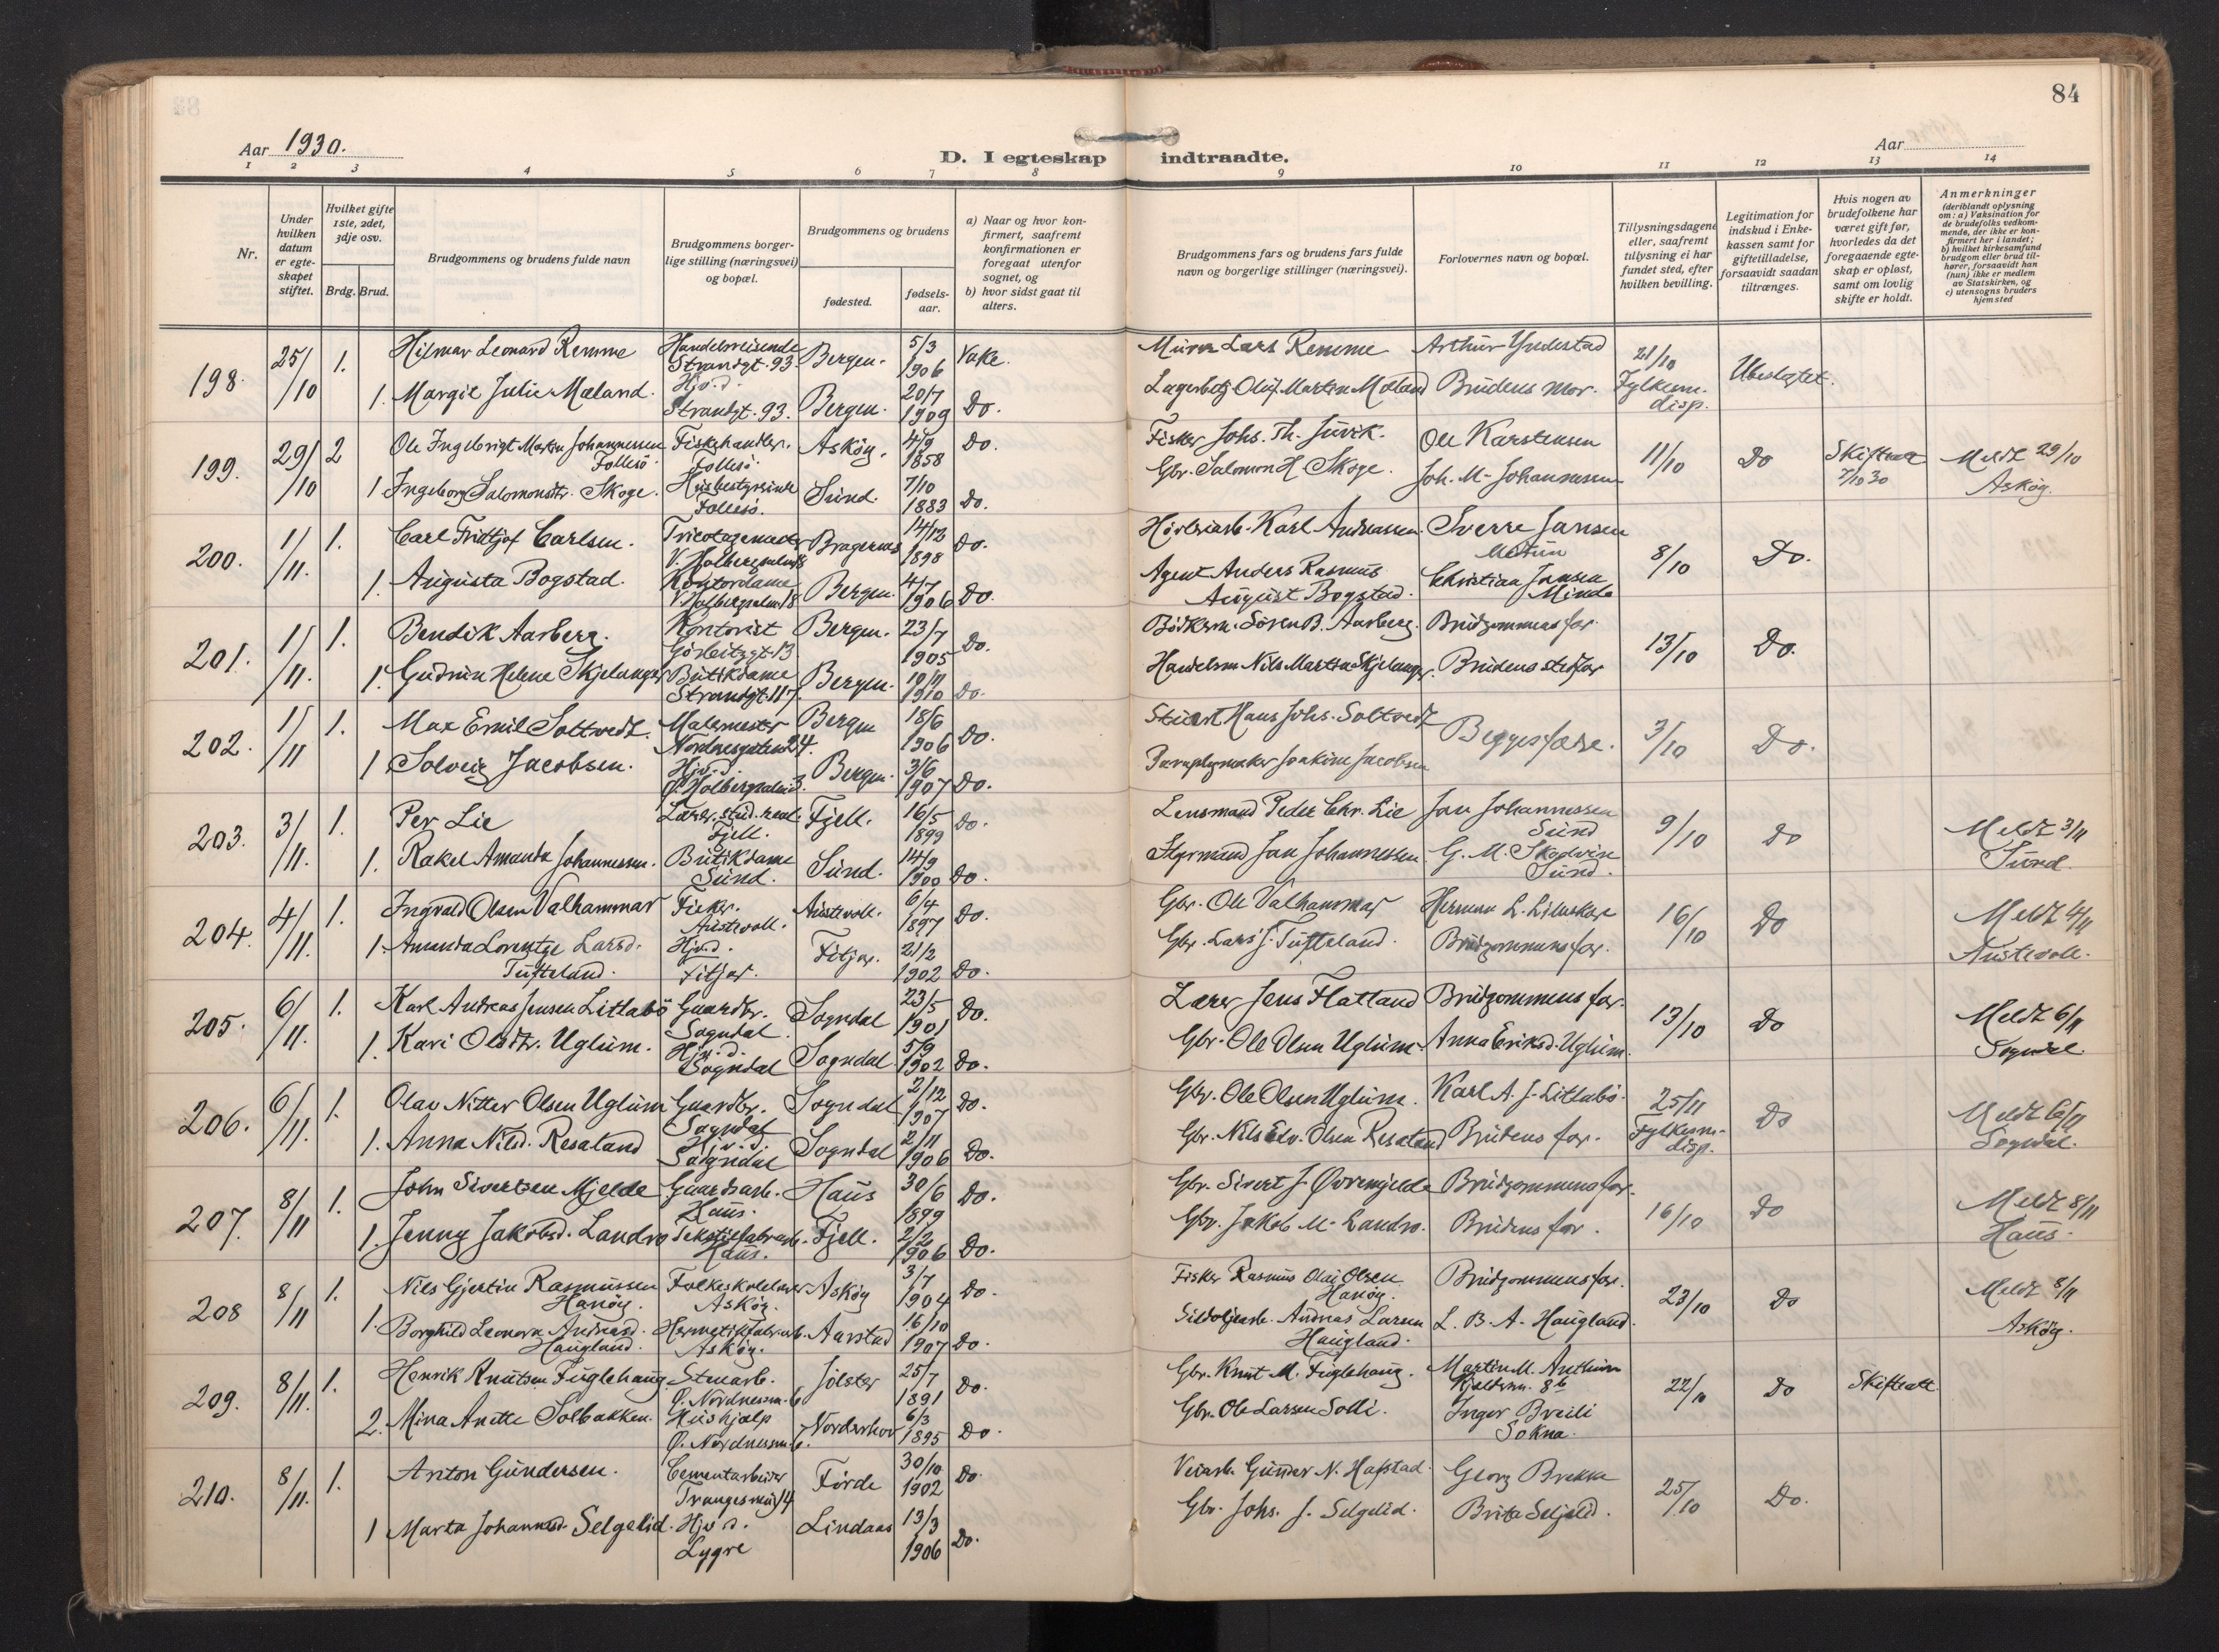 84
Aar 1930.
D. I egteskap indtraadte.
Aar
1 2 3 4 5 6 7 8 9 10 11 12 13 14
Nr.
Under hvilken datum er egteskapet stiftet.
Hvilket gifte 1ste, 2det, 3dje osv.
Brdg. Brud.
Brudgommens og brudens fulde navn
Brudgommens borgerlige stilling (næringsvei) og bopæl.
Brudgommens og brudens
fødested.
fødselsaar.
a) Naar og hvor konfirmert, saafremt konfirmationen er foregaat utenfor sognet, og
b) hvor sidst gaat til alters.
Brudgommens fars og brudens fars fulde navn og borgerlige stillinger (næringsvei).
Forlovernes navn og bopæl.
Tillysningsdagene eller, saafremt tillysning ei har fundet sted, efter hvilken bevilling.
Legitimation for indskud i Enkekassen samt for giftetilladelse, forsaavidt saadan tiltrænges.
Hvis nogen av brudefolkene har været gift før, hvorledes da det foregaaende egteskap er opløst, samt om lovlig skifte er holdt.
Anmerkninger (deriblandt oplysning om: a) Vaksination for de brudefolks vedkommende, der ikke er konfirmert her i landet; b) hvilket kirkesamfund brudgom eller brud tilhører, forsaavidt han (hun) ikke er medlem av Statskirken, og c) utensogns bruders hjemsted
198. 25/10 1. Hilmar Leonard Remme Handelsreisende Strandgt. 93. Bergen. 5/3 1906 Vake. Murer Lars Remme Arthur Yndestad 21/10 Fylkesm. disp. Ubeslegtet.
1. Margit Julie Mæland. Hjv. d. Strandgt. 93. Bergen. 20/7 1909 Do. Lagerbetj. Oluf Martin Mæland Brudens mor.
199. 29/10 2 Ole Ingebrigt Martin Johannessen Follesö. Fiskehandler. Follesö. Asköy. 4/9 1858 Do. Fisker Johs. Th. Juvik. Ole Karstensen 11/10 Do Skifteatt 7/10 30 Meldt 29/10 Asköy.
1 Ingeborg Salomonsdtr. Skoge. Husbestyrerinde Follesö. Sund. 7/10 1883 Do. Gbr. Salomon H. Skoge. Joh. M. Johannessen
200. 1/11. 1. Carl Fridtjof Carlsen. V. Holbergsalm. 18 Bragernes 14/12 1898 Do. Høvleriarb. Karl Andreassen. Sverre Jansen 8/10 Do.
1. Augusta Bogstad. Kontordame V. Holbergsalm. 18 Bergen. 4/7 1906 Do. Agent Anders Rasmus August Bogstad. Christian Jansen Minde
201. 1/11. 1. Bendik Aarberg. Kontorist Bergen. 23/7 1905 Do. Bödkerm. Sören B. Aarberg. Brudgommens far. 13/10 Do.
1. Gudrun Helene Skjelanger Butikdame Strandgt. 117. Bergen. 10/11 1910 Do. Handelsm. Nils Martin Skjelanger. Brudens stefar
202. 1/11 1. Max Emil Soltvedt. Malermester Nordnesgaten 24. Bergen 18/6 1906 Do. Stuert Hans Johs. Soltvedt Begges fædre. 3/10 Do.
1 Solveig Jacobsen. Hjv. d. Ø. Holbergsalm. 3. Bergen. 3/6 1907 Do. Paraplymaker Joakim Jacobsen
203. 3/11. 1. Per Lie Lærer, stud. real. Fjell. Fjell. 16/5 1899 Do. Lensmand Peder Chr. Lie Jan Johannessen Sund 9/10 Do Meldt 3/11 Sund.
1. Rakel Amanda Johannessen. Butikdame Sund. Sund. 14/9 1900 Do. Styrmand Jan Johannessen G. M. Skodvin Sund.
204. 4/11. 1. Ingvald Olsen Valhammar Fisker. Austevoll. Austevoll. 6/4 1897 Do. Gbr. Ole Valhammar Herman L. 16/10 Do Meldt 4/11 Austevoll.
1. Amanda Lorentze Larsd. Tufteland. Hjv. d. Fitjar. Fitjar. 21/2 1902 Do. Gbr. Lars J. Tufteland. Brudgommens far.
205. 6/11. 1. Karl Andreas Jensen Litlabö Gaardbr. Sogndal. Sogndal 23/5 1901 Do. Lærer Jens Flatland Brudgommens far. 13/10 Do Meldt 6/11 Sogndal.
1. Kari Olsdtr. Uglum. Hjv. d. Sogndal Sogndal 5/9 1902 Do. Gbr. Ole Olsen Uglum. Anna Eriksd. Uglum.
206. 6/11. 1. Olav Nitter Olsen Uglum Gaardbr. Sogndal Sogndal 2/12 1907 Do. Gbr. Ole Olsen Uglum. Karl A. J. Litlabö. 25/11 Fylkesm. disp. Do Meldt 6/11 Sogndal.
1. Anna Nilsd. Resaland Hjv. d. Sogndal Sogndal 2/11 1906 Do. Gbr. Nils Edv. Olsen Resaland Brudens far.
207. 8/11 1. John Sivertsen Mjelde Gaardsarb. Haus. Haus 30/6 1899 Do. Gbr. Sivert J. Øvremjelde Brudgommens far. 16/10 Do Meldt 8/11 Haus.
1. Jenny Jakobsd. Landro Tekstilfabr.arb. Haus. Fjell. 2/2 1906 Do. Gbr. Jakob M. Landro. Brudens far.
208 8/11 1. Nils Gjertin Rasmussen Hanöy. Folkeskolelærer Asköy. Asköy 3/7 1904 Do. Fisker Rasmus Olai Olsen Hanöy. Brudgommens far. 23/10 Do Meldt 8/11 Asköy.
1. Borghild Leonora Andreasd. Haugland. Hermetikfabr.arb. Asköy. Aarstad 16/10 1907 Do. Sildoljearb. Andreas Larsen Haugland. L. B. A. Haugland.
209. 8/11. 1. Henrik Knutsen Fuglehaug. Stuearb. Ø. Nordnessm. 6 Jölster 25/7 1891 Do. Gbr. Knut M. Fuglehaug. Martin M. 22/10 Do Skifteatt.
2. Mina Anette Solbakken. Hushjælp Ø. Nordnessm. 6. Norderhov 6/3 1895 Do. Gbr. Ole Larsen Solli. Inger Breili Sokna.
210. 8/11. 1. Anton Gundersen. Cementarbeider Trangesmug 14 Förde 30/10 1902 Do. Veiarb. Gunder N. Hafstad. Georg Brekke 25/10 Do.
1 Marta Johannesd. Selgelid. Hjv. d. Lygre Lindaas 13/3 1906 Do. Gbr. Johs. J. Selgelid. Brita Seljelid.